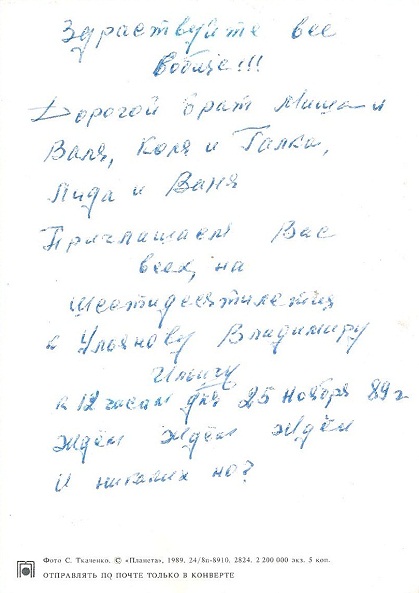 Здраствуйте все
вобще!!!
Дорогой брат Миша и
Валя, Коля и Галка,
Лида и Ваня
Приглашаем Вас
всех, на
шестидесятилетия
к Ульянову Владимиру
Ильичу
к 12 часам дня 25 Ноября 89 г
Ждём Ждём Ждём
И никаких но?
Фото С. Ткаченко. © «Планета», 1989. 24/8п-8910. 2824. 2 200 000 экз. 5 коп.
ОТПРАВЛЯТЬ ПО ПОЧТЕ ТОЛЬКО В КОНВЕРТЕ